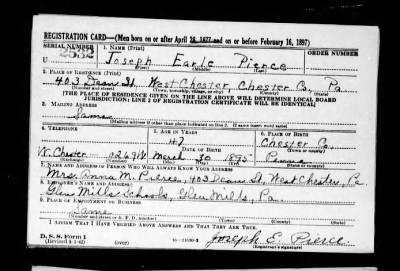 REGISTRATION CARD—(Men born on or after April 28, 1877 and on or before February 16, 1897)
SERIAL NUMBER
1. NAME (Print)
ORDER NUMBER
Joseph Earle Pierce
(First) (Middle) (Last)
2. PLACE OF RESIDENCE (Print)
403 Dean St, West Chester, Chester Co, Pa
(Number and street) (Town, township, village, or city) (County) (State)
[THE PLACE OF RESIDENCE GIVEN ON THE LINE ABOVE WILL DETERMINE LOCAL BOARD
JURISDICTION; LINE 2 OF REGISTRATION CERTIFICATE WILL BE IDENTICAL]
3. MAILING ADDRESS
Same
[Mailing address if other than place indicated on line 2. If same insert word same]
4. TELEPHONE
5. AGE IN YEARS
6. PLACE OF BIRTH
47
Chester Co,
DATE OF BIRTH
(Town or county)
W. Chester 0269M March 30 1895 Penna
(Exchange) (Number) (Mo.) (Day) (Yr.) (State or country)
7. NAME AND ADDRESS OF PERSON WHO WILL ALWAYS KNOW YOUR ADDRESS
Mrs. Anna M. Pierce, 403 Dean St, West Chester, Pa
8. EMPLOYER'S NAME AND ADDRESS
Glen Mills Schools, Glen Mills, Pa
9. PLACE OF EMPLOYMENT OR BUSINESS
Same
(Number and street or R. F. D. number) (Town) (County) (State)
I AFFIRM THAT I HAVE VERIFIED ABOVE ANSWERS AND THAT THEY ARE TRUE.
D. S. S. Form 1
(Revised 4-1-42) (over)
Joseph E. Pierce
(Registrant's signature)